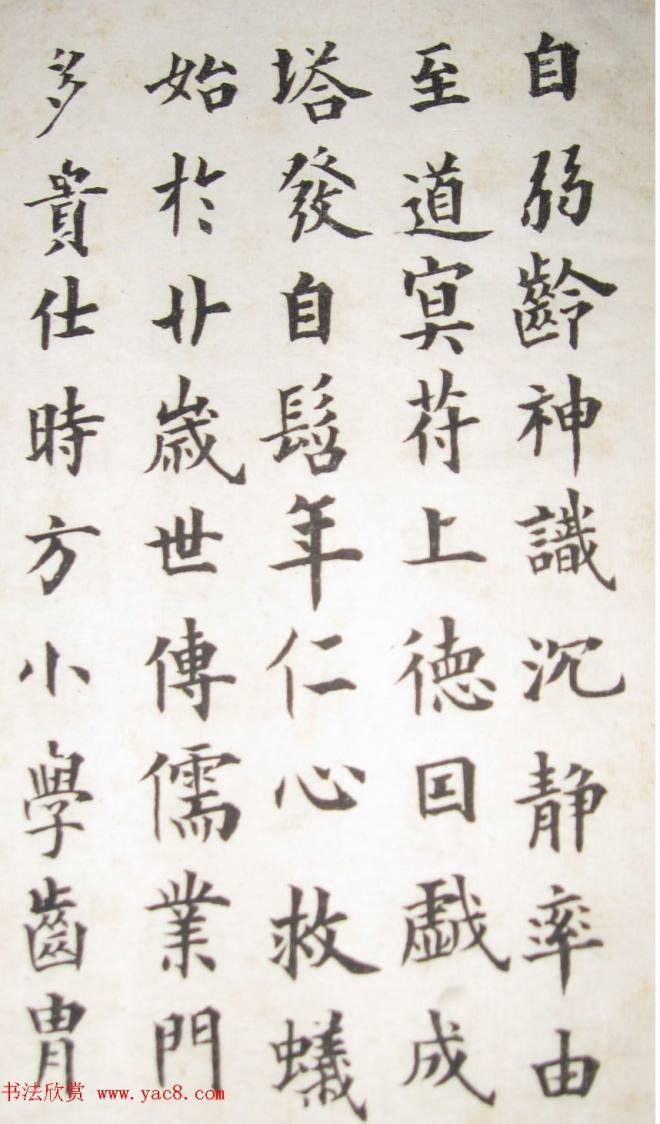 自弱齡神識沉静率由
至道冥苻上德囙戯成
塔發自髫年仁心救蟻
始於廾歳世傳儒業門
多貴仕時方小學齒胄
书法欣赏 www.yac8.com